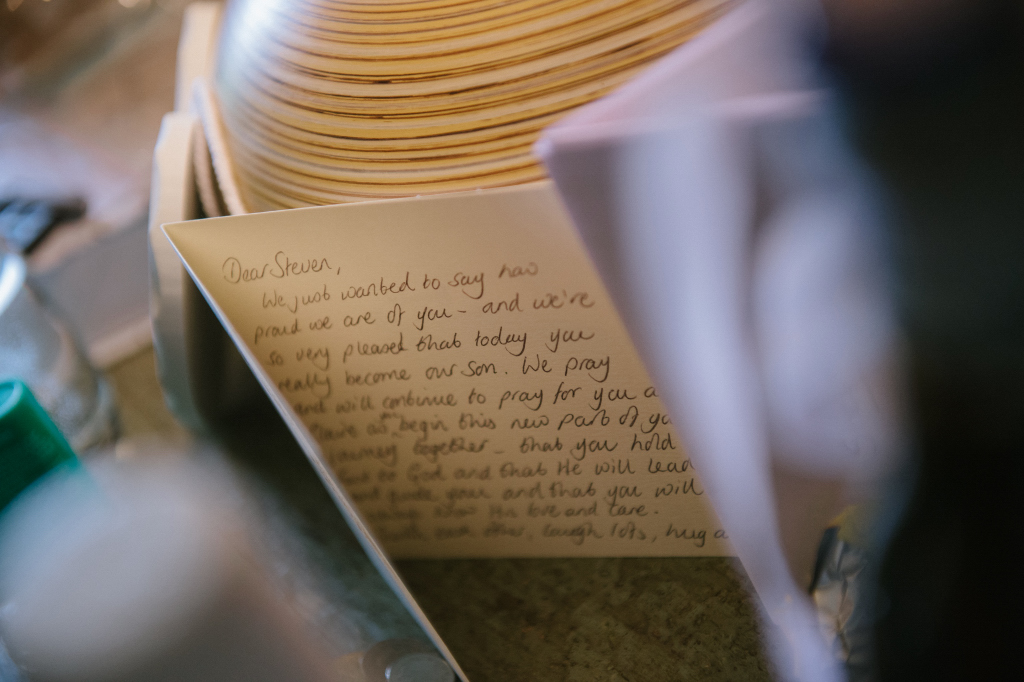 Dear Steven,
We just wanted to say how
proud we are of you - and we're
so very pleased that today you
really become our son. We pray
and will continue to pray for you a
as you begin this new part of yo
journey together - that you hold
to God and that He will lead
and guide you and that you will
know His love and care.
each other, laugh lots, hug a